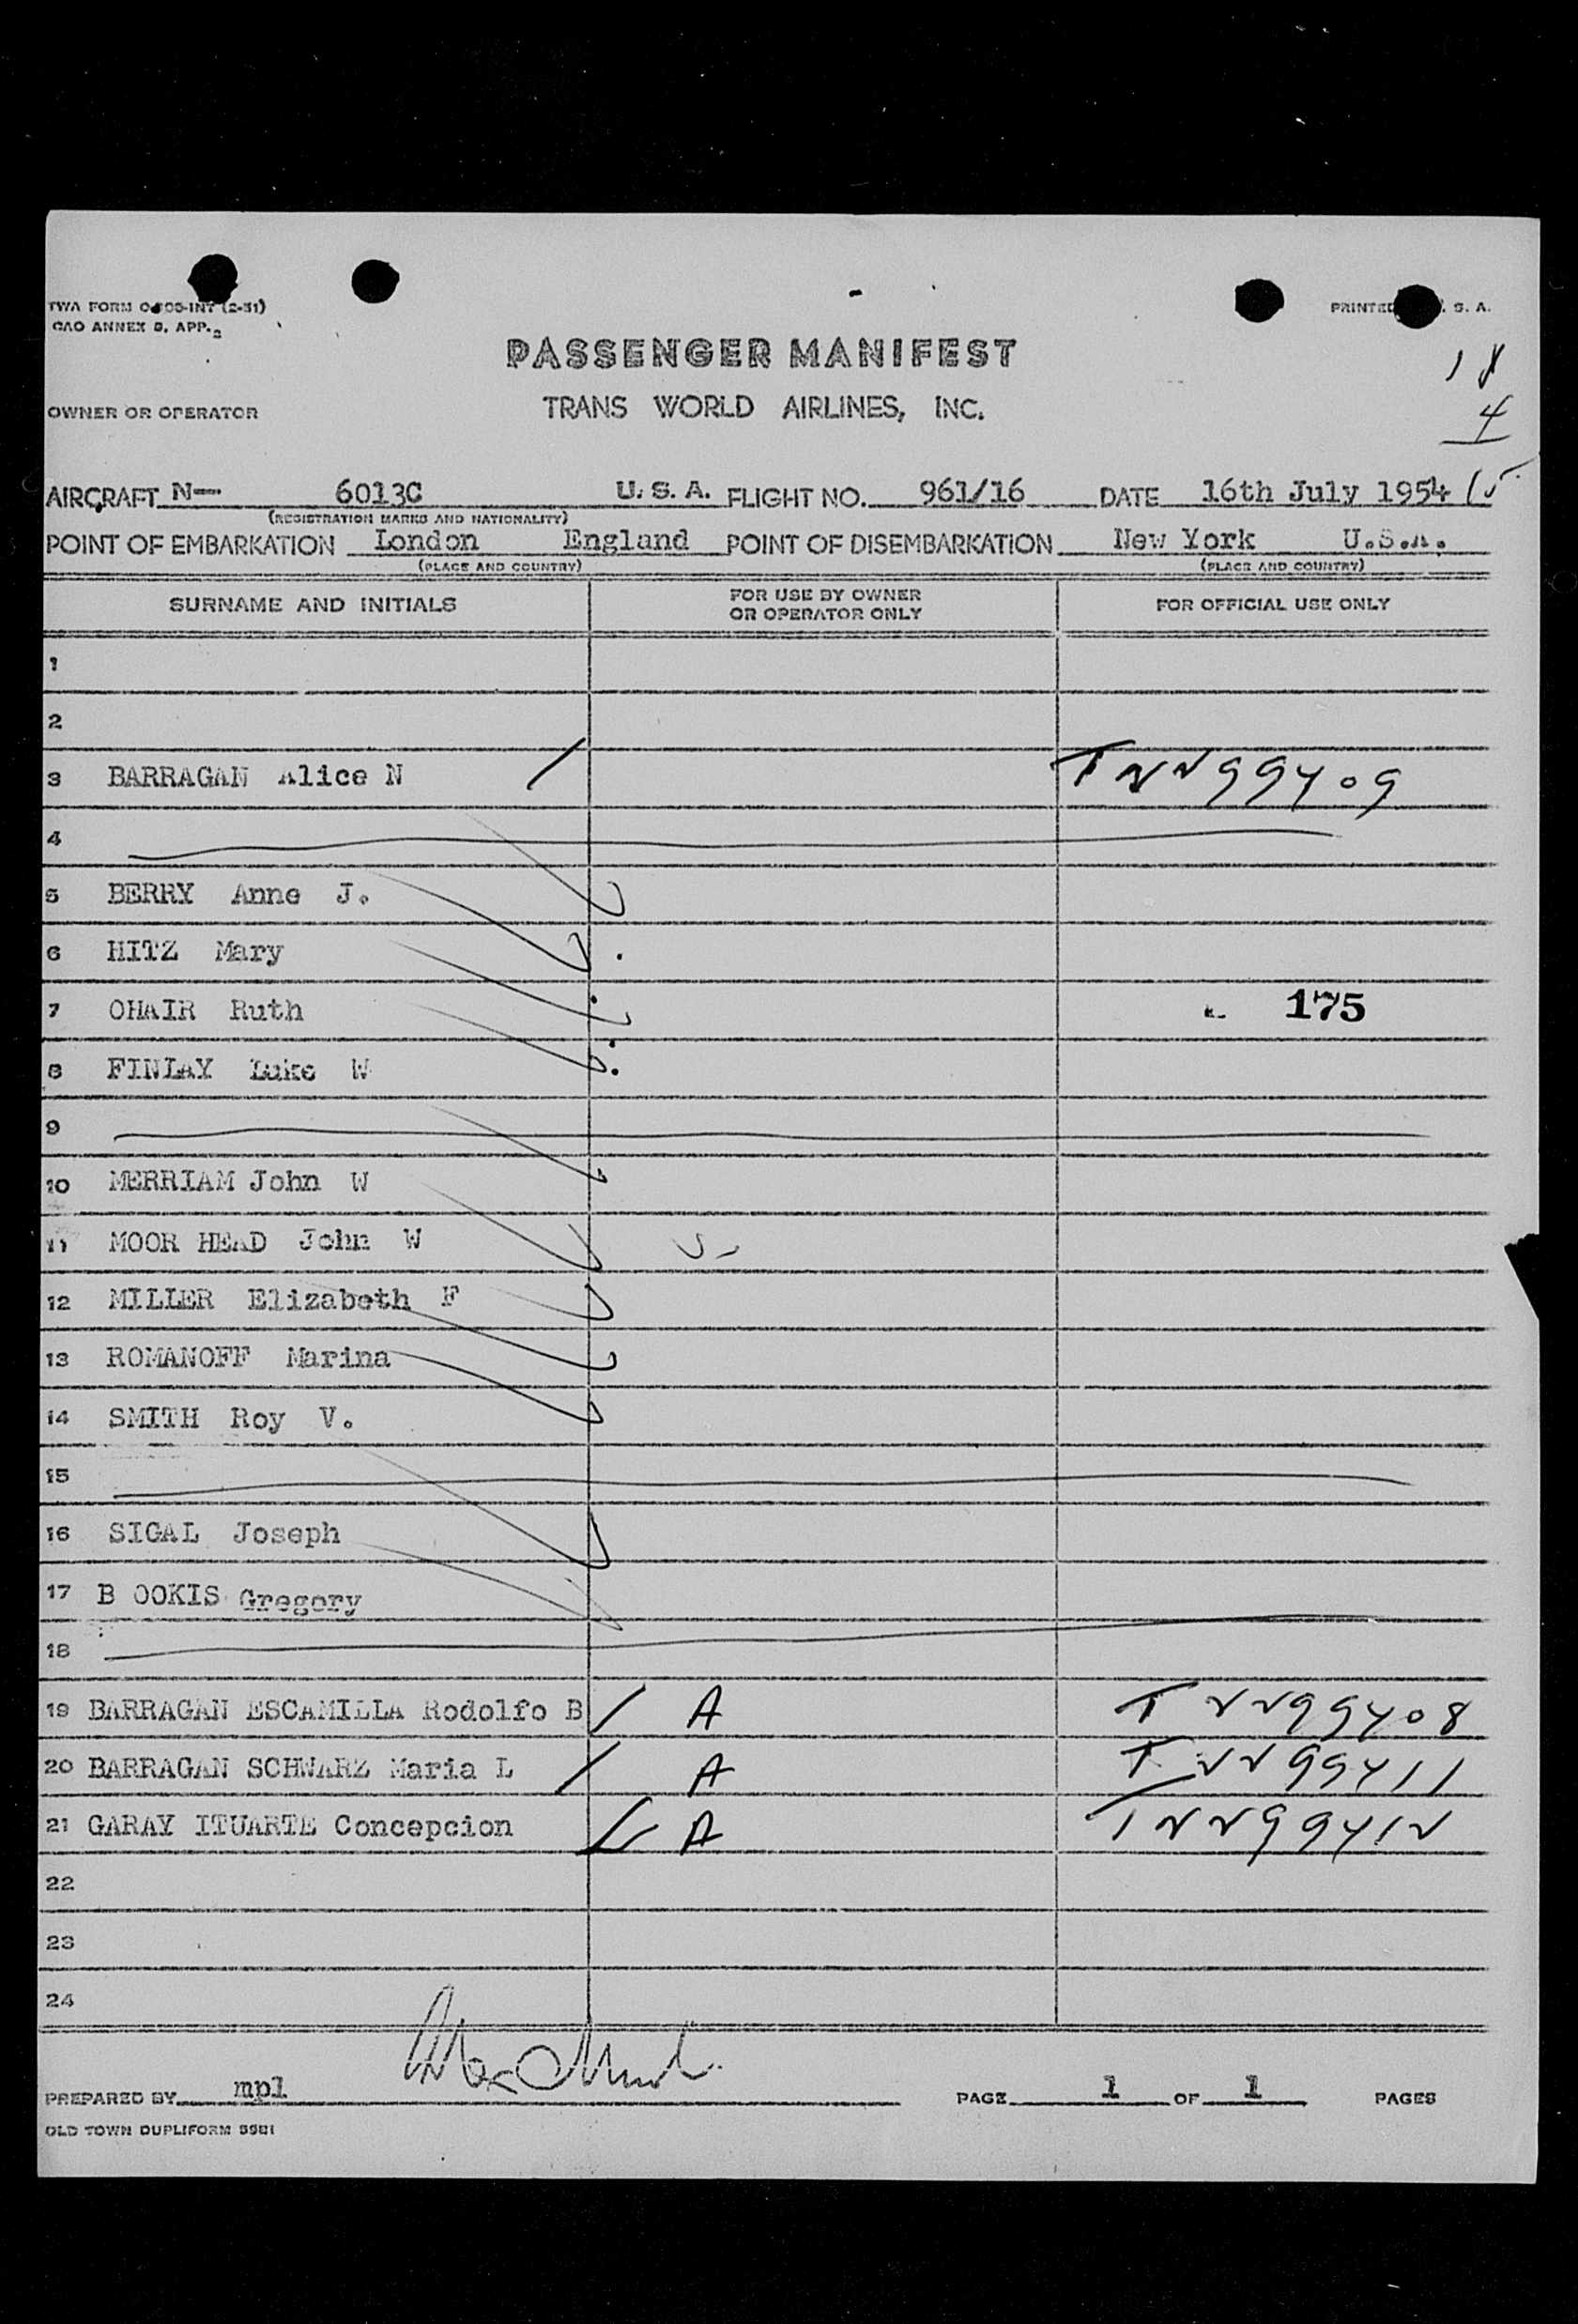 TWA FORM INT (2-51)
CAO ANNEX 9, APP. 2
PRINTED S. A.
PASSENGER MANIFEST
18
OWNER OR OPERATOR TRANS WORLD AIRLINES, INC.
4
AIRCRAFT N— 6013C U. S. A. FLIGHT NO. 961/16 DATE 16th July 1954 15
(REGISTRATION MARKS AND NATIONALITY)
POINT OF EMBARKATION London England POINT OF DISEMBARKATION New York U.S.A.
(PLACE AND COUNTRY) (PLACE AND COUNTRY)
SURNAME AND INITIALS FOR USE BY OWNER OR OPERATOR ONLY FOR OFFICIAL USE ONLY
1
2
3 BARRAGAN Alice N / T2299409
4
5 BERRY Anne J.
6 HITZ Mary
7 OHAIR Ruth 175
8 FINLAY Luke W
9
10 MERRIAM John W
11 MOOR HEAD John W
12 MILLER Elizabeth F
13 ROMANOFF Marina
14 SMITH Roy V.
15
16 SIGAL Joseph
17 B OOKIS Gregory
18
19 BARRAGAN ESCAMILLA Rodolfo B / A T2299408
20 BARRAGAN SCHWARZ Maria L / A T2299411
21 GARAY ITUARTE Concepcion A T2299412
22
23
24
PREPARED BY mpl PAGE 1 OF 1 PAGES
OLD TOWN DUPLIFORM 5981